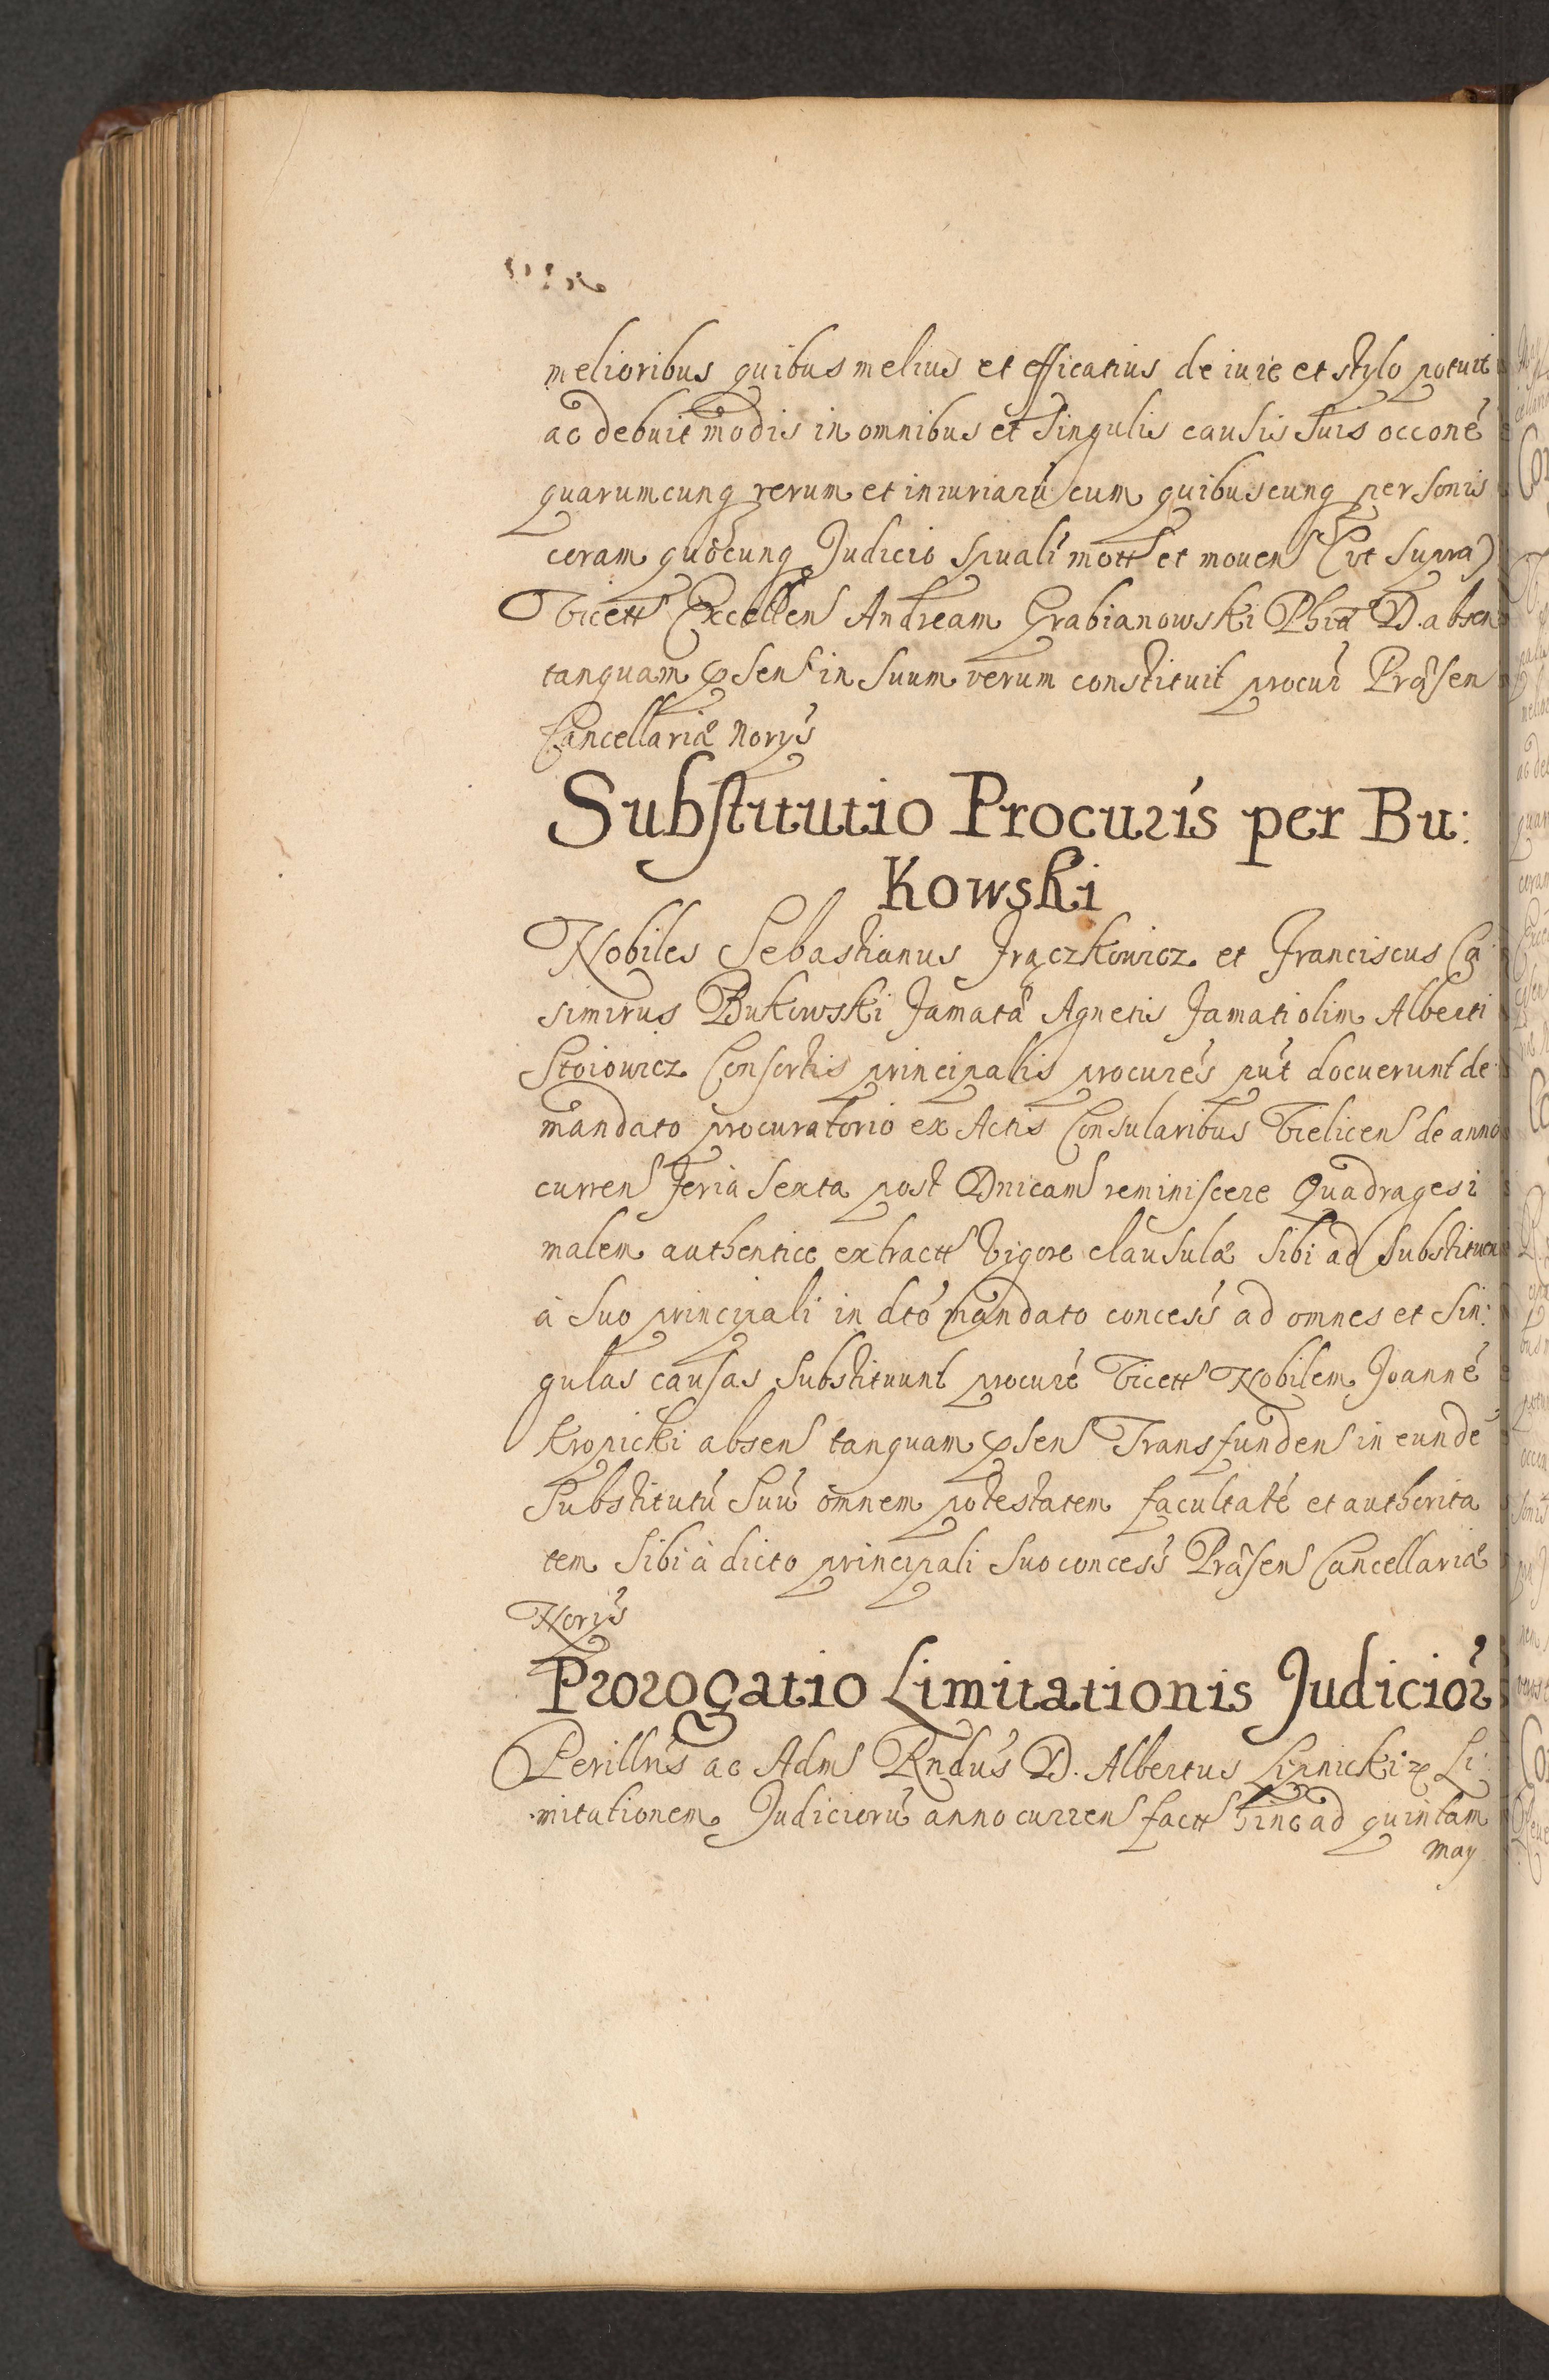 melioribus quibus melius et efficatius de iure et stylo potuit
ac debuit modis in omnibus et singulis causis suis occone
quarumcunq rerum et iniuriarū cum quibuscunq personis
coram quocunq Judicio spuali mott et mouen (ut supra)
Vicett Excellen Andream Grabianowski Phiæ D. absen
tanquam psen in suum verum constituit procur Præsen
Cancellariæ Norys
Substitutio Procuris per Bu:
Kowski
Nobiles Sebastianus Frączkowicz et Franciscus Ca
simirus Bukowski famatæ Agnetis famati olim Alberti
Stoiowicz Consortis principalis procures put docuerunt de
mandato procuratorio ex Actis Consularibus Vielicen de anno
curren feria sexta post Dnicam reminiscere Quadragesi
malem authentice extractt vigore clausulæ sibi ad substituen
à suo principali in dto mandato concess ad omnes et sin:
gulas causas substituunt procure Vicett Nobilem Joanné
Kropicki absen tanquam psen Transfunden in eundé
substitutū suū omnem potestatem facultaté et authorita
tem sibi à dicto principali suo concess Præsen Cancellariæ
Norys
Prorogatio Limitationis Judicior
Perillris ac Adm Rndus D. Albertus Lipnicki Li:
mitationem Judiciorū anno curren factt hinc ad quintam
may